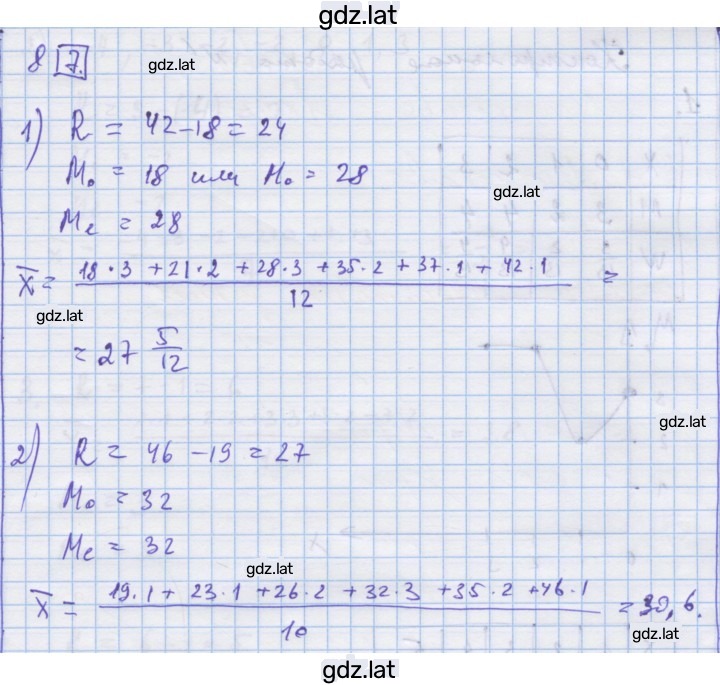 gdz.lat
8 7.
gdz.lat
1) R = 42-18 = 24
M₀ = 18 или M₀ = 28
gdz.lat
Me = 28
X̅ = (18·3 + 21·2 + 28·3 + 35·2 + 37·1 + 42·1) / 12 =
gdz.lat
= 27 5/12
gdz.lat
2) R = 46 - 19 = 27
M₀ = 32
Me = 32
gdz.lat
X̅ = (19·1 + 23·1 + 26·2 + 32·3 + 35·2 + 46·1) / 10 = 30,6.
gdz.lat
gdz.lat